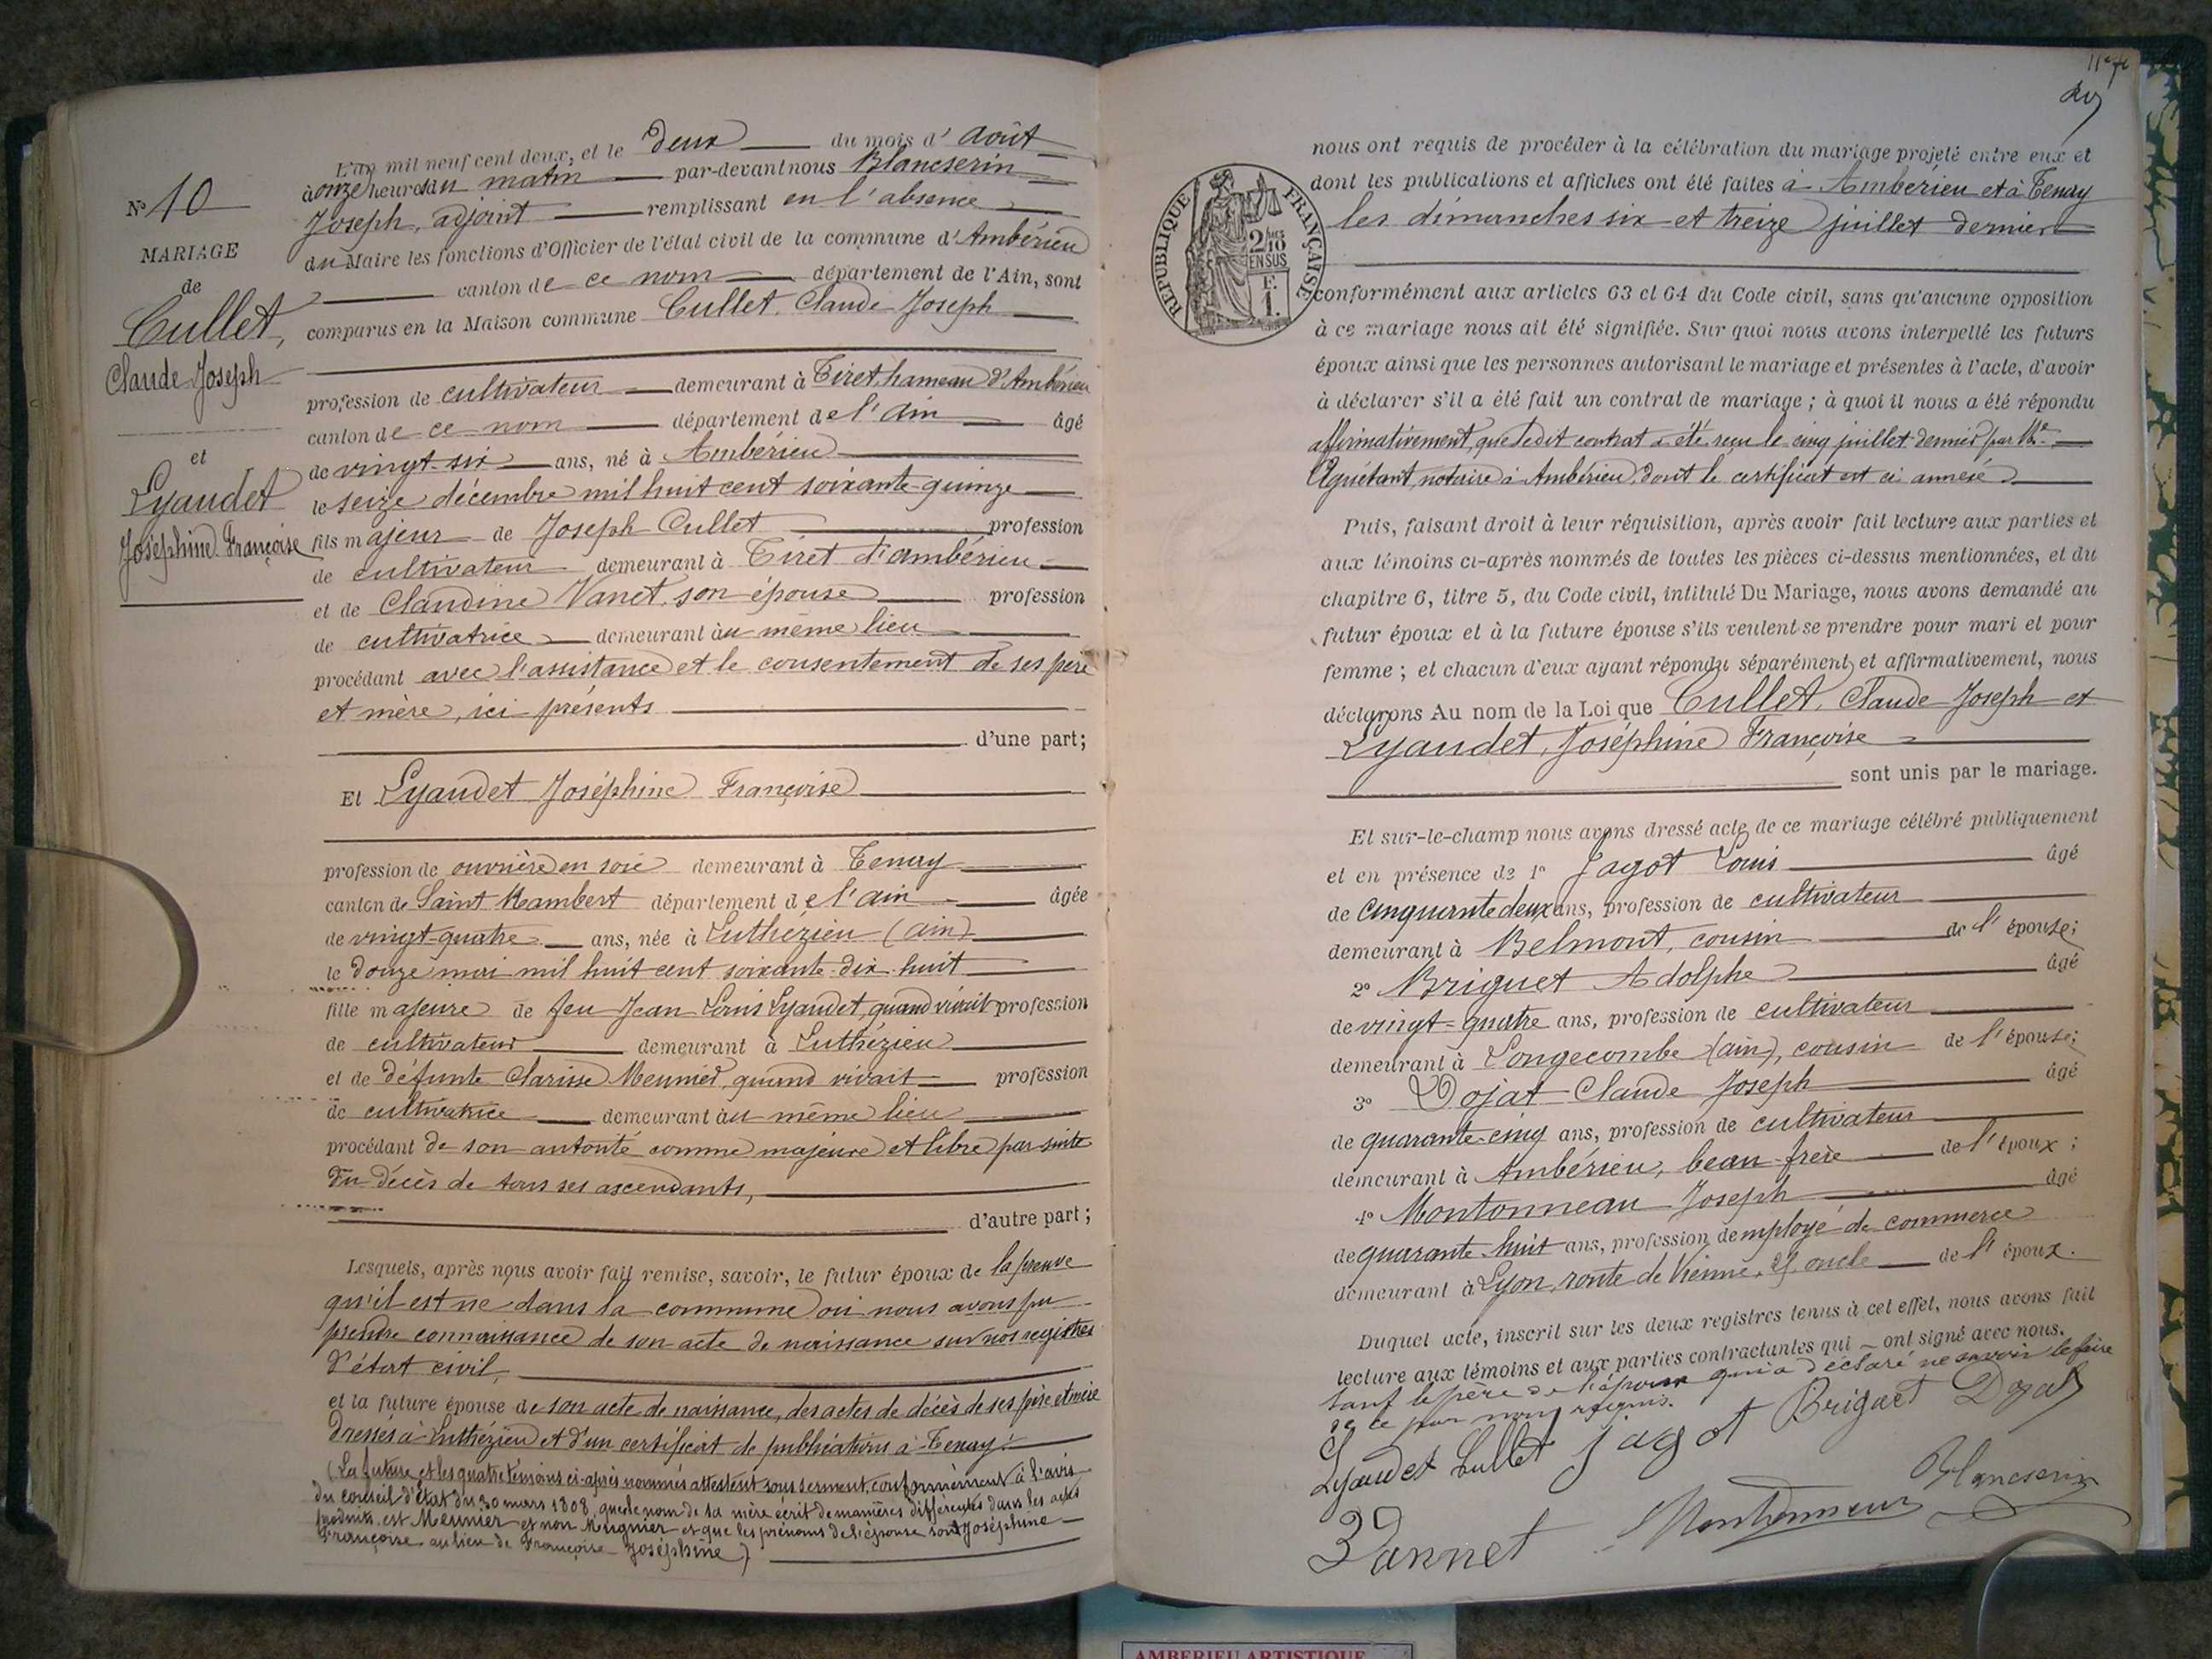 N° 10
MARIAGE
de
Cullet,
Claude Joseph
et
Lyaudet
Joséphine Françoise
L'an mil neuf cent deux, et le deux du mois d'août
à onze heures du matin par-devant nous Blancserin
Joseph, adjoint remplissant en l'absence
du Maire les fonctions d'Officier de l'état civil de la commune d'Ambérieu
canton de ce nom département de l'Ain, sont
comparus en la Maison commune Cullet, Claude Joseph
profession de cultivateur demeurant à Tiret, hameau d'Ambérieu
canton de ce nom département de l'Ain âgé
de vingt-six ans, né à Ambérieu
le seize décembre mil huit cent soixante-quinze
fils majeur de Joseph Cullet profession
de cultivateur demeurant à Tiret d'Ambérieu
et de Claudine Vanet, son épouse profession
de cultivatrice demeurant au même lieu
procédant avec l'assistance et le consentement de ses père
et mère, ici présents
d'une part;
Et Lyaudet Joséphine Françoise
profession de ouvrière en soie demeurant à Tenay
canton de Saint Rambert département de l'ain âgée
de vingt-quatre ans, née à Luthézieu (ain)
le douze mai mil huit cent soixante-dix-huit
fille majeure de feu Jean Louis Lyaudet, quand vivait profession
de cultivateur demeurant à Luthézieu
et de défunte Clarisse Meunier, quand vivait profession
de cultivatrice demeurant au même lieu
procédant de son autorité comme majeure et libre par suite
du décès de tous ses ascendants,
d'autre part;
Lesquels, après nous avoir fait remise, savoir, le futur époux de la preuve
qu'il est né dans la commune où nous avons pu
prendre connaissance de son acte de naissance sur nos registres
d'état civil,
et la future épouse de son acte de naissance, des actes de décès de ses père et mère
dressés à Luthézieu et d'un certificat de publications à Tenay.
(La future et les quatre témoins ci-après nommés attestent sous serment, conformément à l'avis
du conseil d'état du 30 mars 1808, que le nom de sa mère écrit de manières différentes dans les actes
produits, est Meunier et non Mugnier et que les prénoms de l'épouse sont Joséphine
Françoise au lieu de Françoise Joséphine)
RÉPUBLIQUE FRANÇAISE
2/10
EN SUS
F.
1.
nous ont requis de procéder à la célébration du mariage projeté entre eux et
dont les publications et affiches ont été faites à Ambérieu et à Tenay
les dimanches six et treize juillet dernier
conformément aux articles 63 et 64 du Code civil, sans qu'aucune opposition
à ce mariage nous ait été signifiée. Sur quoi nous avons interpellé les futurs
époux ainsi que les personnes autorisant le mariage et présentes à l'acte, d'avoir
à déclarer s'il a été fait un contrat de mariage; à quoi il nous a été répondu
affirmativement, que ledit contrat a été reçu le cinq juillet dernier par Me
Aguétant, notaire à Ambérieu, dont le certificat est ci annexé
Puis, faisant droit à leur réquisition, après avoir fait lecture aux parties et
aux témoins ci-après nommés de toutes les pièces ci-dessus mentionnées, et du
chapitre 6, titre 5, du Code civil, intitulé Du Mariage, nous avons demandé au
futur époux et à la future épouse s'ils veulent se prendre pour mari et pour
femme; et chacun d'eux ayant répondu séparément et affirmativement, nous
déclarons Au nom de la Loi que Cullet, Claude Joseph et
Lyaudet, Joséphine Françoise
sont unis par le mariage.
Et sur-le-champ nous avons dressé acte de ce mariage célébré publiquement
et en présence de 1° Jagot Louis âgé
de Cinquante deux ans, profession de cultivateur
demeurant à Belmont, cousin de l'épouse;
2° Briguet Adolphe âgé
de vingt-quatre ans, profession de cultivateur
demeurant à Longecombe (ain), cousin de l'épouse;
3° Dojat Claude Joseph âgé
de quarante-cinq ans, profession de cultivateur
demeurant à Ambérieu, beau-frère de l'époux;
4° Montonneau Joseph âgé
de quarante-huit ans, profession d'employé de commerce
demeurant à Lyon, route de Vienne, oncle de l'époux.
Duquel acte, inscrit sur les deux registres tenus à cet effet, nous avons fait
lecture aux témoins et aux parties contractantes qui ont signé avec nous.
sauf le père de l'époux qui a déclaré ne savoir le faire
de ce par nous requis.
Lyaudet Cullet Jagot Briguet Dojat
Vannet Montonneau Blancserin
AMBERIEU ARTISTIQUE